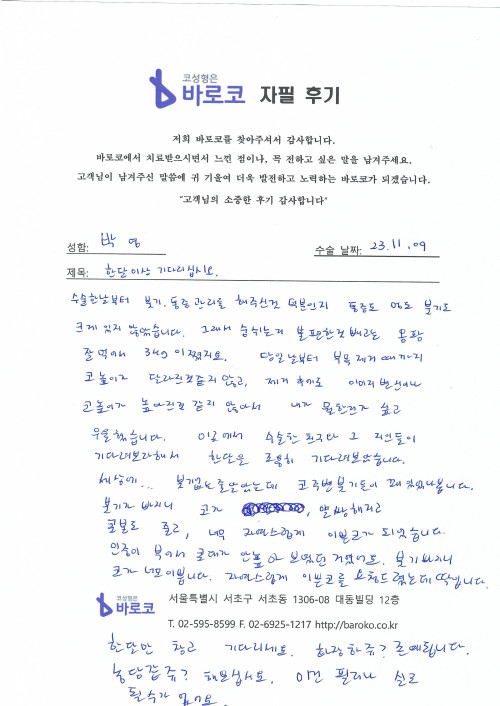 코성형은
바로코 자필 후기
저희 바로코를 찾아주셔서 감사합니다.
바로코에서 치료받으시면서 느낀 점이나, 꼭 전하고 싶은 말을 남겨주세요.
고객님이 남겨주신 말씀에 귀 기울여 더욱 발전하고 노력하는 바로코가 되겠습니다.
"고객님의 소중한 후기 감사합니다"
성함: 박 영 수술 날짜: 23.11.09
제목: 한달이상 기다리십시오.
수술한날부터 붓기.통증 관리를 해주신것 덕분인지 통증도 없고 붓기도
크게 있지 않았습니다. 그래서 숨쉬는게 불편한것 빼고는
잘 먹어서 3kg이 쪘지요. 당일날부터 부목제거 때까지
코높이가 달라진것같지 않고, 제거 후에도 이미지 변신이나
코높이가 높아진것 같지 않아서 내가 뭘한건가 싶고
우울했습니다. 수술한 환자나 그 지인들이
기다려보라해서 한달을 조용히 기다려보았습니다.
세상에... 붓기없는줄알았는데 코주변붓기들이 꽤 있었나봅니다.
붓기가 빠지니 코가 , 해지고
콧볼도 줄고, 너무 자연스럽게 이쁜코가 되었습니다.
부어서 콧대가 안높아 보였던 거였어요. 붓기빠지니
코가 너무이쁩니다. 자연스럽게 이쁜코를 요청드렸는데 딱입니다.
코성형은
바로코
서울특별시 서초구 서초동 1306-08 대동빌딩 12층
T. 02-595-8599 F. 02-6925-1217 http://baroko.co.kr
한달만 참고 기다리세요. 화장하쥬? 존예됩니다.
농담같쥬? 해보십시오. 이건 필러나 실로
필수가 없어요.